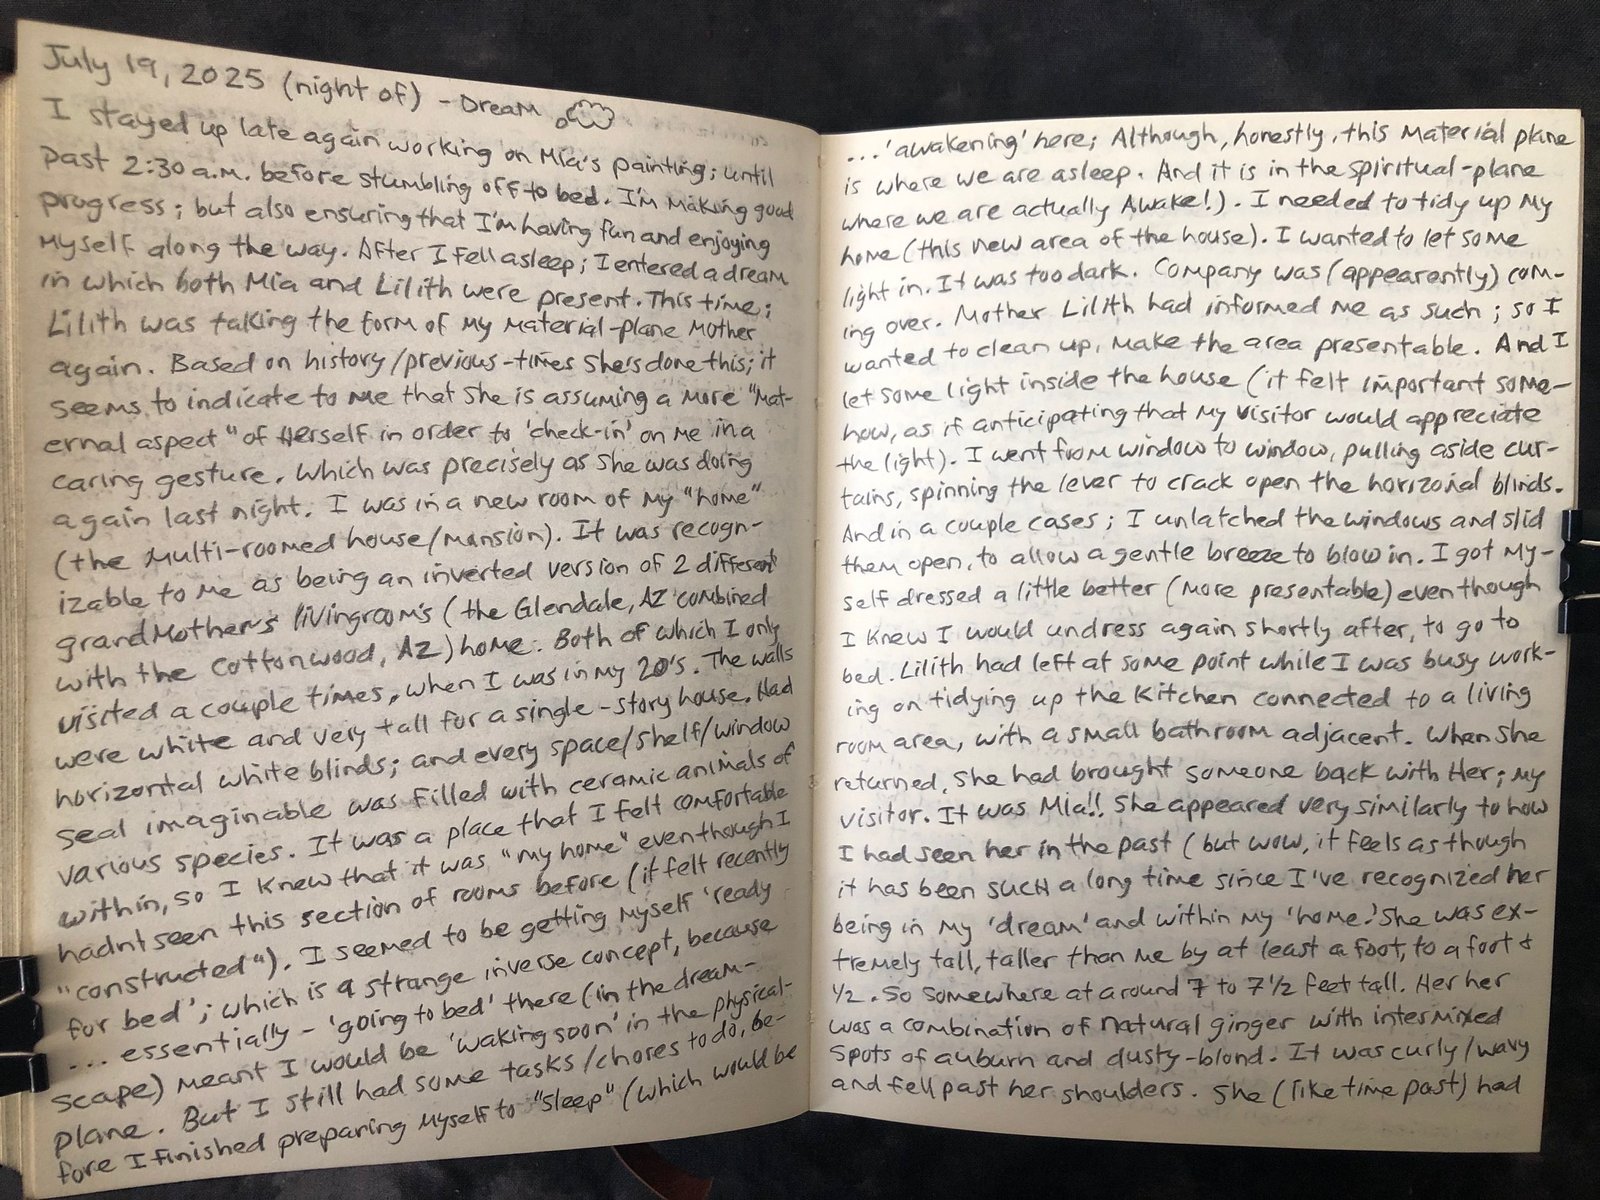 July 19, 2025 (night of) - Dream
I stayed up late again working on Mia's painting; until
past 2:30 a.m. before stumbling off to bed. I'm making good
progress; but also ensuring that I'm having fun and enjoying
myself along the way. After I fell asleep; I entered a dream
in which both Mia and Lilith were present. This time;
Lilith was taking the form of my material-plane mother
again. Based on history/previous-times she's done this; it
seems to indicate to me that she is assuming a more "mat-
ernal aspect" of Herself in order to 'check-in' on me in a
caring gesture. Which was precisely as she was doing
again last night. I was in a new room of my "home"
(the multi-roomed house/mansion). It was recogn-
izable to me as being an inverted version of 2 different
grandmother's livingrooms (the Glendale, AZ combined
with the Cottonwood, AZ) home. Both of which I only
visited a couple times, when I was in my 20's. The walls
were white and very tall for a single-story house. Had
horizontal white blinds; and every space/shelf/window
seal imaginable was filled with ceramic animals of
various species. It was a place that I felt comfortable
within, so I knew that it was "my home" even though I
hadnt seen this section of rooms before (it felt recently
"constructed"). I seemed to be getting myself 'ready
for bed'; which is a strange inverse concept, because
... essentially - 'going to bed' there (in the dream-
scape) meant I would be 'waking soon' in the physical-
plane. But I still had some tasks/chores to do, be-
fore I finished preparing myself to "sleep" (which would be
...'awakening' here; Although, honestly, this material plane
is where we are asleep. And it is in the spiritual-plane
where we are actually Awake!). I needed to tidy up my
home (this new area of the house). I wanted to let some
light in. It was too dark. Company was (appearently) com-
ing over. Mother Lilith had informed me as such; so I
wanted to clean up, make the area presentable. And I
let some light inside the house (it felt important some-
how, as if anticipating that my visitor would appreciate
the light). I went from window to window, pulling aside cur-
tains, spinning the lever to crack open the horizonal blinds.
And in a couple cases; I unlatched the windows and slid
them open, to allow a gentle breeze to blow in. I got my-
self dressed a little better (more presentable) even though
I knew I would undress again shortly after, to go to
bed. Lilith had left at some point while I was busy work-
ing on tidying up the kitchen connected to a living
room area, with a small bathroom adjacent. When she
returned, she had brought someone back with Her; my
visitor. It was Mia!! She appeared very similarly to how
I had seen her in the past (but wow, it feels as though
it has been such a long time since I've recognized her
being in my 'dream' and within my 'home.' She was ex-
tremely tall, taller than me by at least a foot, to a foot &
1/2. So somewhere at around 7 to 7 1/2 feet tall. Her her
was a combination of natural ginger with intermixed
spots of auburn and dusty-blond. It was curly/wavy
and fell past her shoulders. She (like time past) had